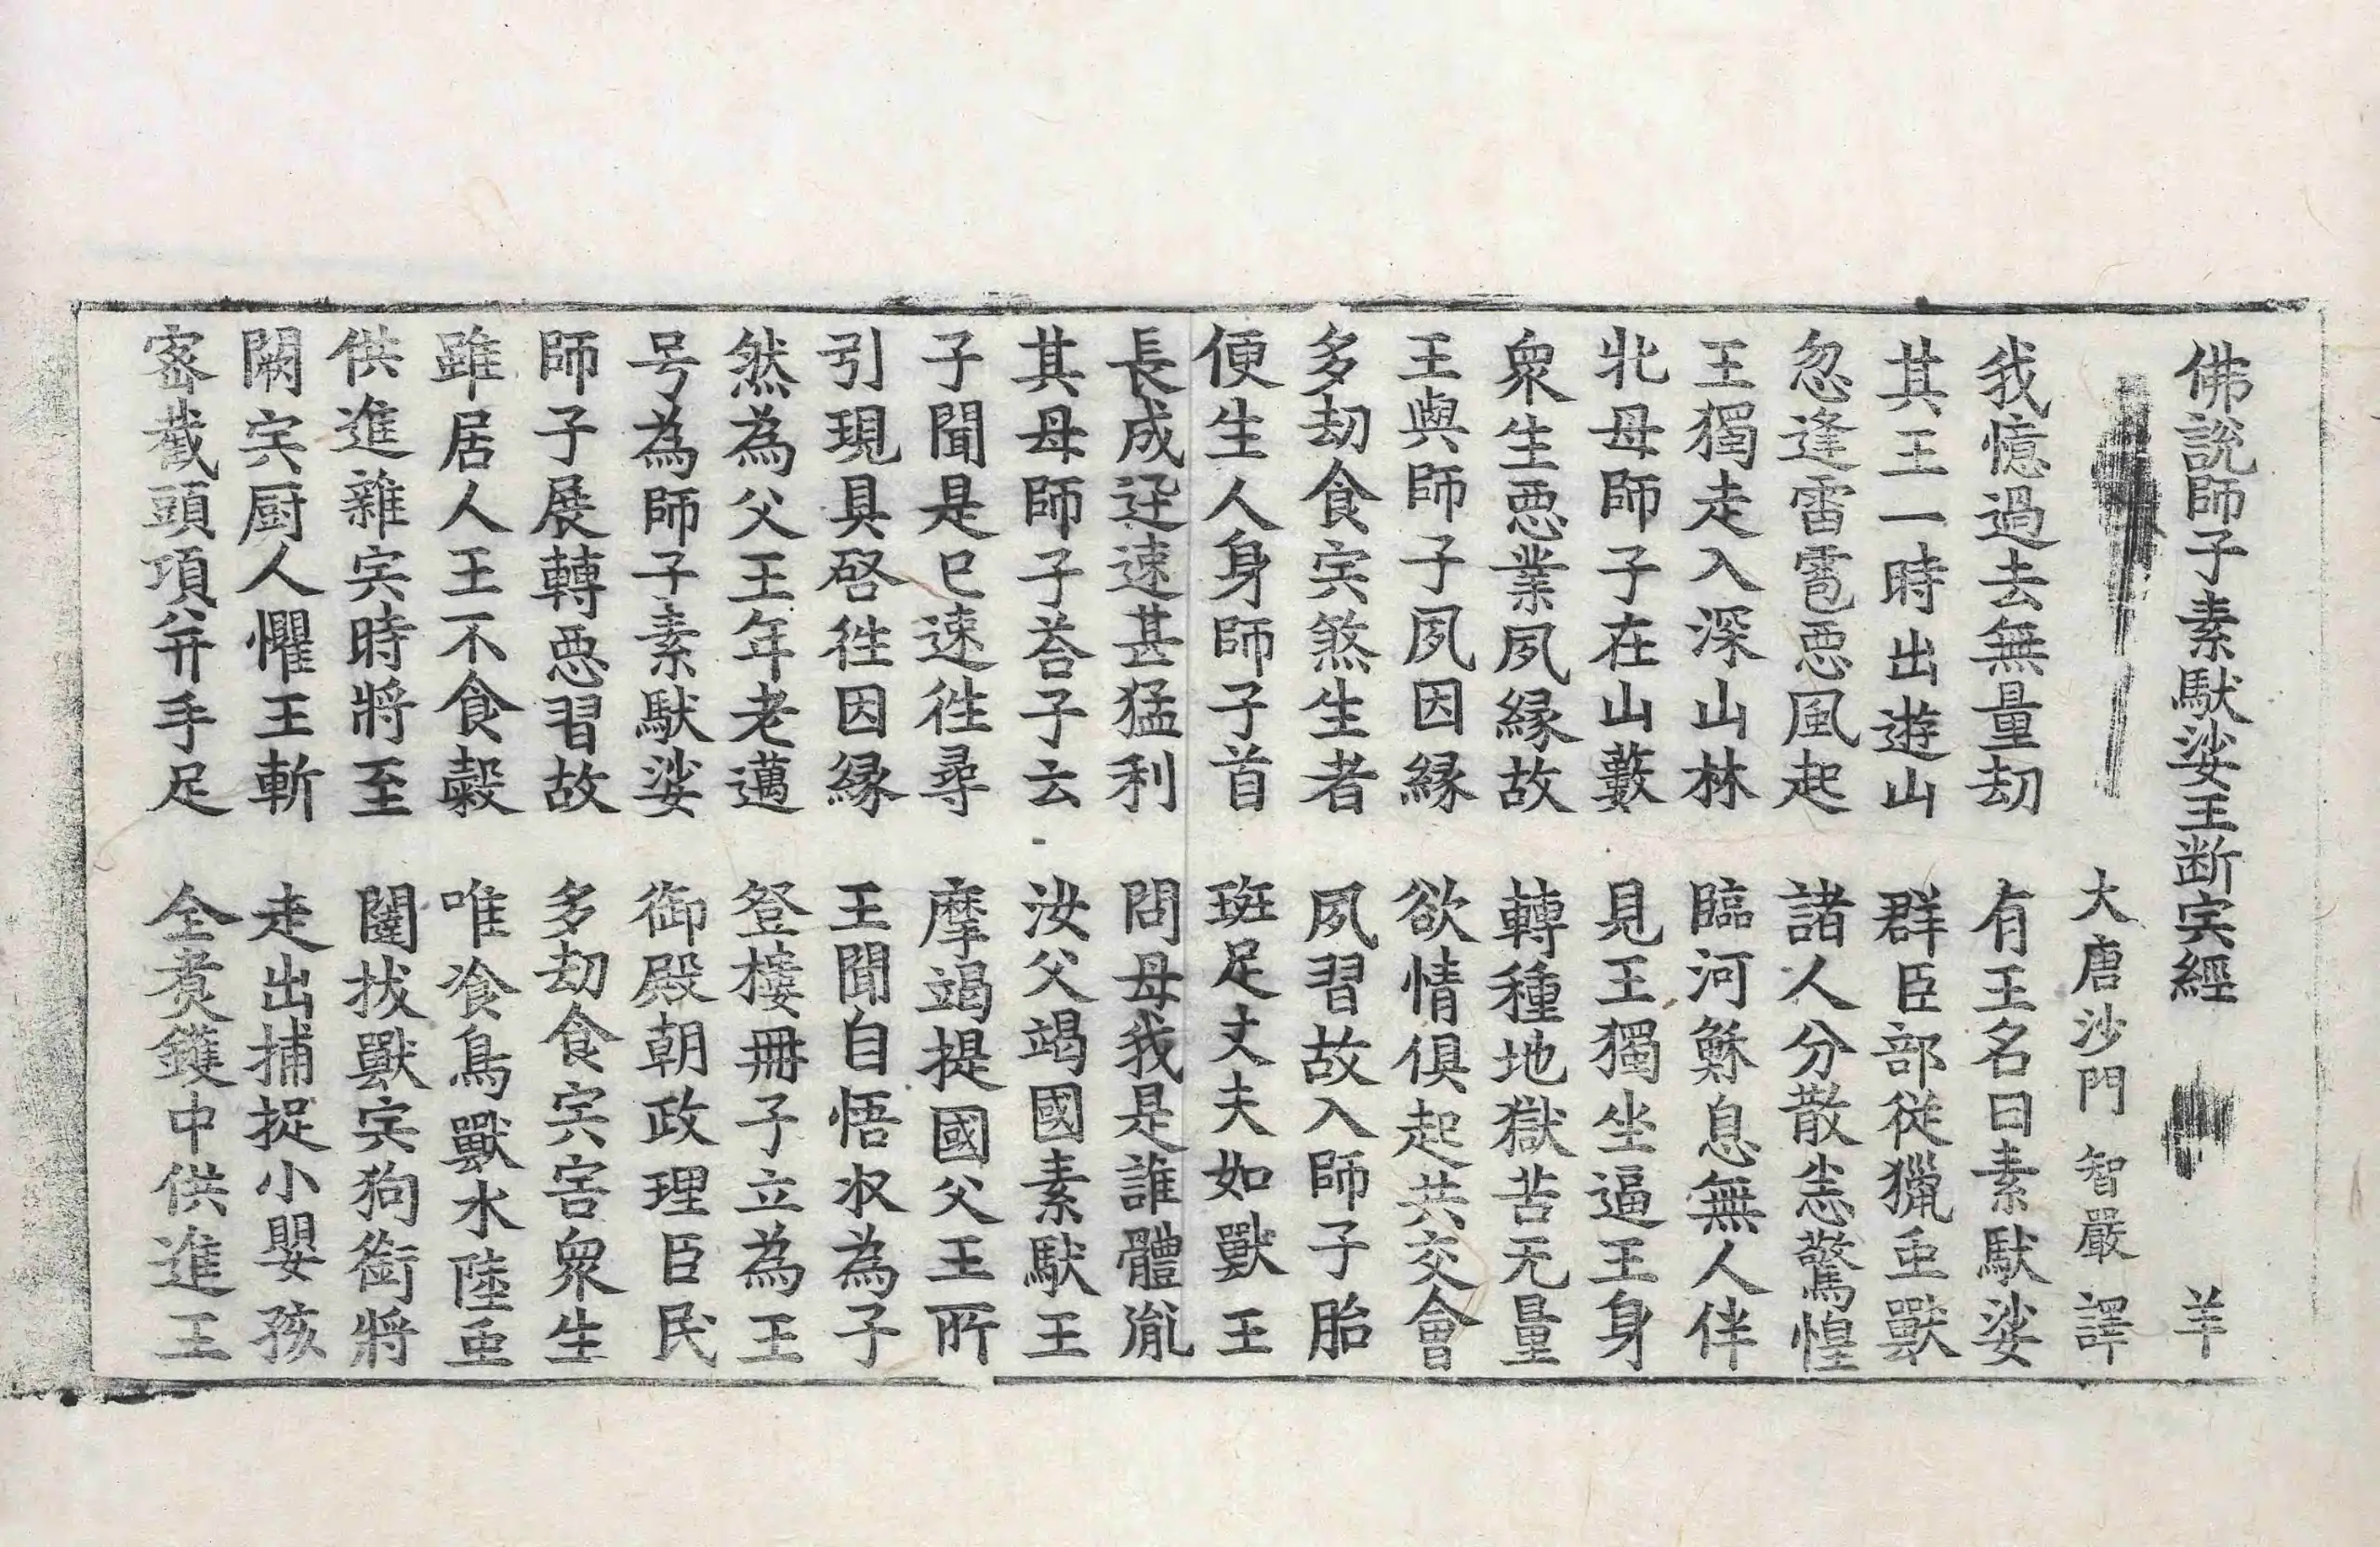 佛說師子素馱娑王断宍經 羊
大唐沙門 智嚴 譯
我憶過去無量劫 有王名曰素馱娑
其王一時出遊山 群臣部從獵䖝獸
忽逢雷雹惡風起 諸人分散恙驚惶
王獨走入深山林 臨河穌息無人伴
牝母師子在山藪 見王獨坐逼王身
衆生惡業夙緣故 轉種地獄苦无量
王與師子夙因緣 欲情俱起共交會
多劫食宍煞生者 夙習故入師子胎
便生人身師子首 班足丈夫如獸王
長成迅速甚猛利 問母我是誰體胤
其母師子荅子云 汝父竭國素馱王
子聞是已速徃尋 摩竭提國父王所
引現具啓徃因緣 王聞自悟収為子
然為父王年老邁 登樓冊子立為王
号為師子素馱娑 御殿朝政理臣民
師子展轉惡習故 多劫食宍害衆生
雖居人王不食穀 唯飡鳥獸水陸䖝
供進雜宍時將至 闥拔獸宍狗銜將
闕宍厨人懼王斬 走出捕捉小嬰孩
宻截頭項并手足 全煑鑊中供進王